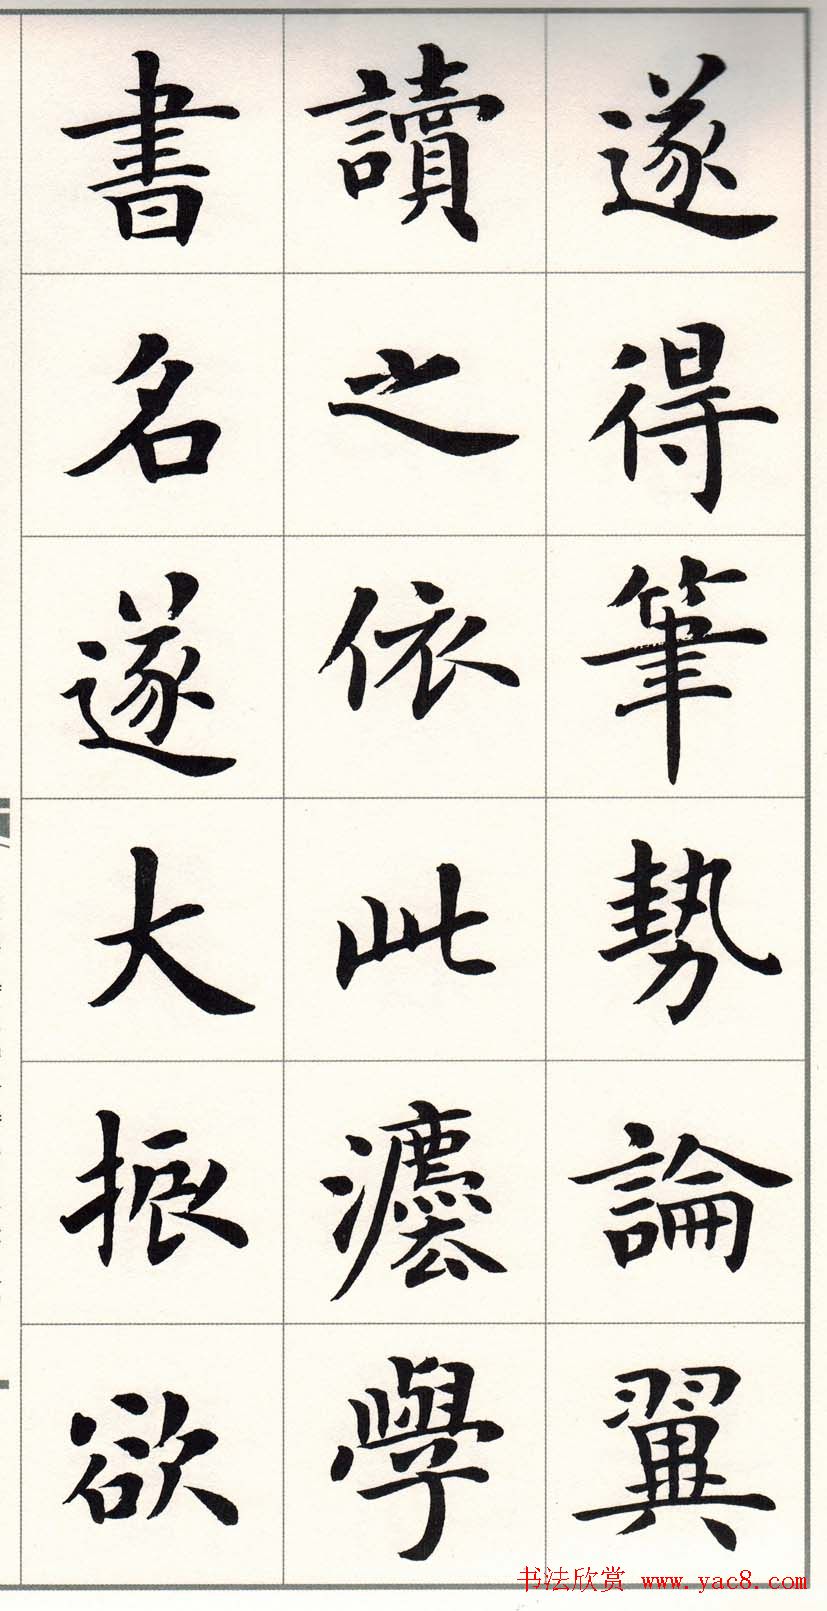 遂得筆勢論翼
讀之依此灋學
書名遂大振欲
书法欣赏 www.yac8.com